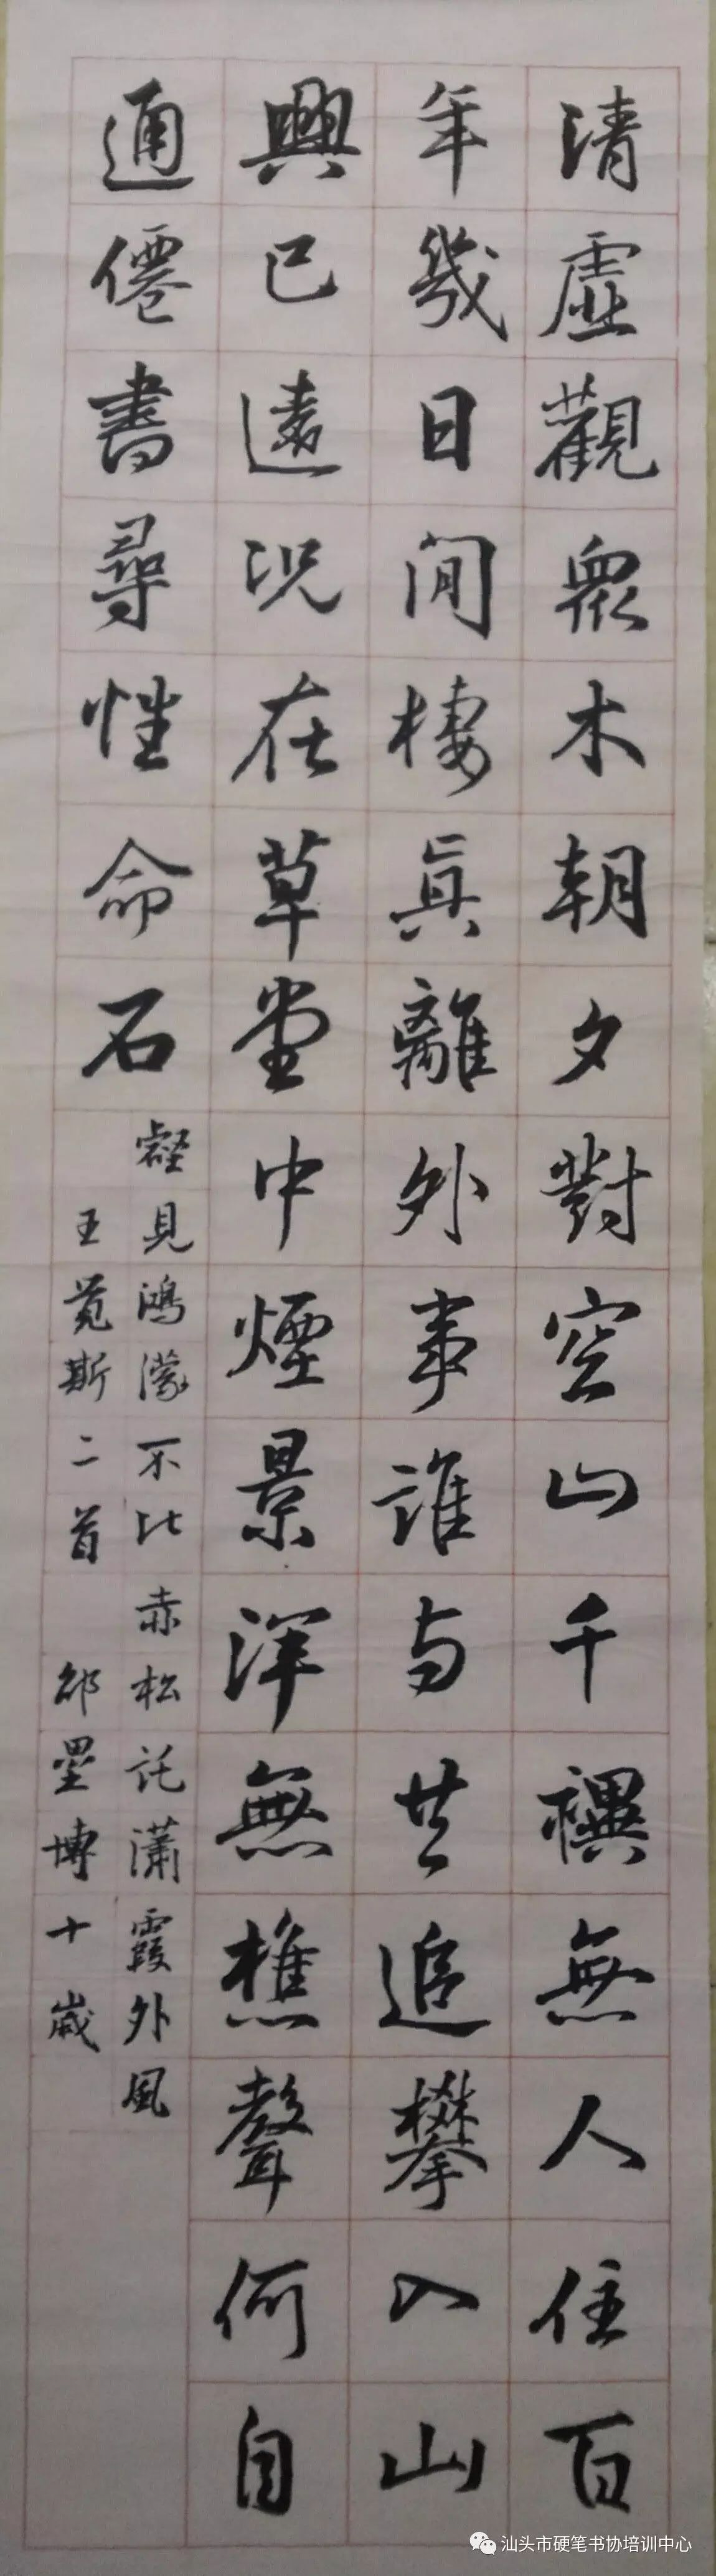 清虛觀眾木朝夕對空山千禩無人住百
年幾日閒棲真離外事誰与共追攀入山
興已遠況在草堂中煙景渾無樵聲何自
通僊書尋性命石
壑見鴻濛不比赤松託瀟霞外風
王覓斯二首 邰壘博十歲
汕头市硬笔书协培训中心